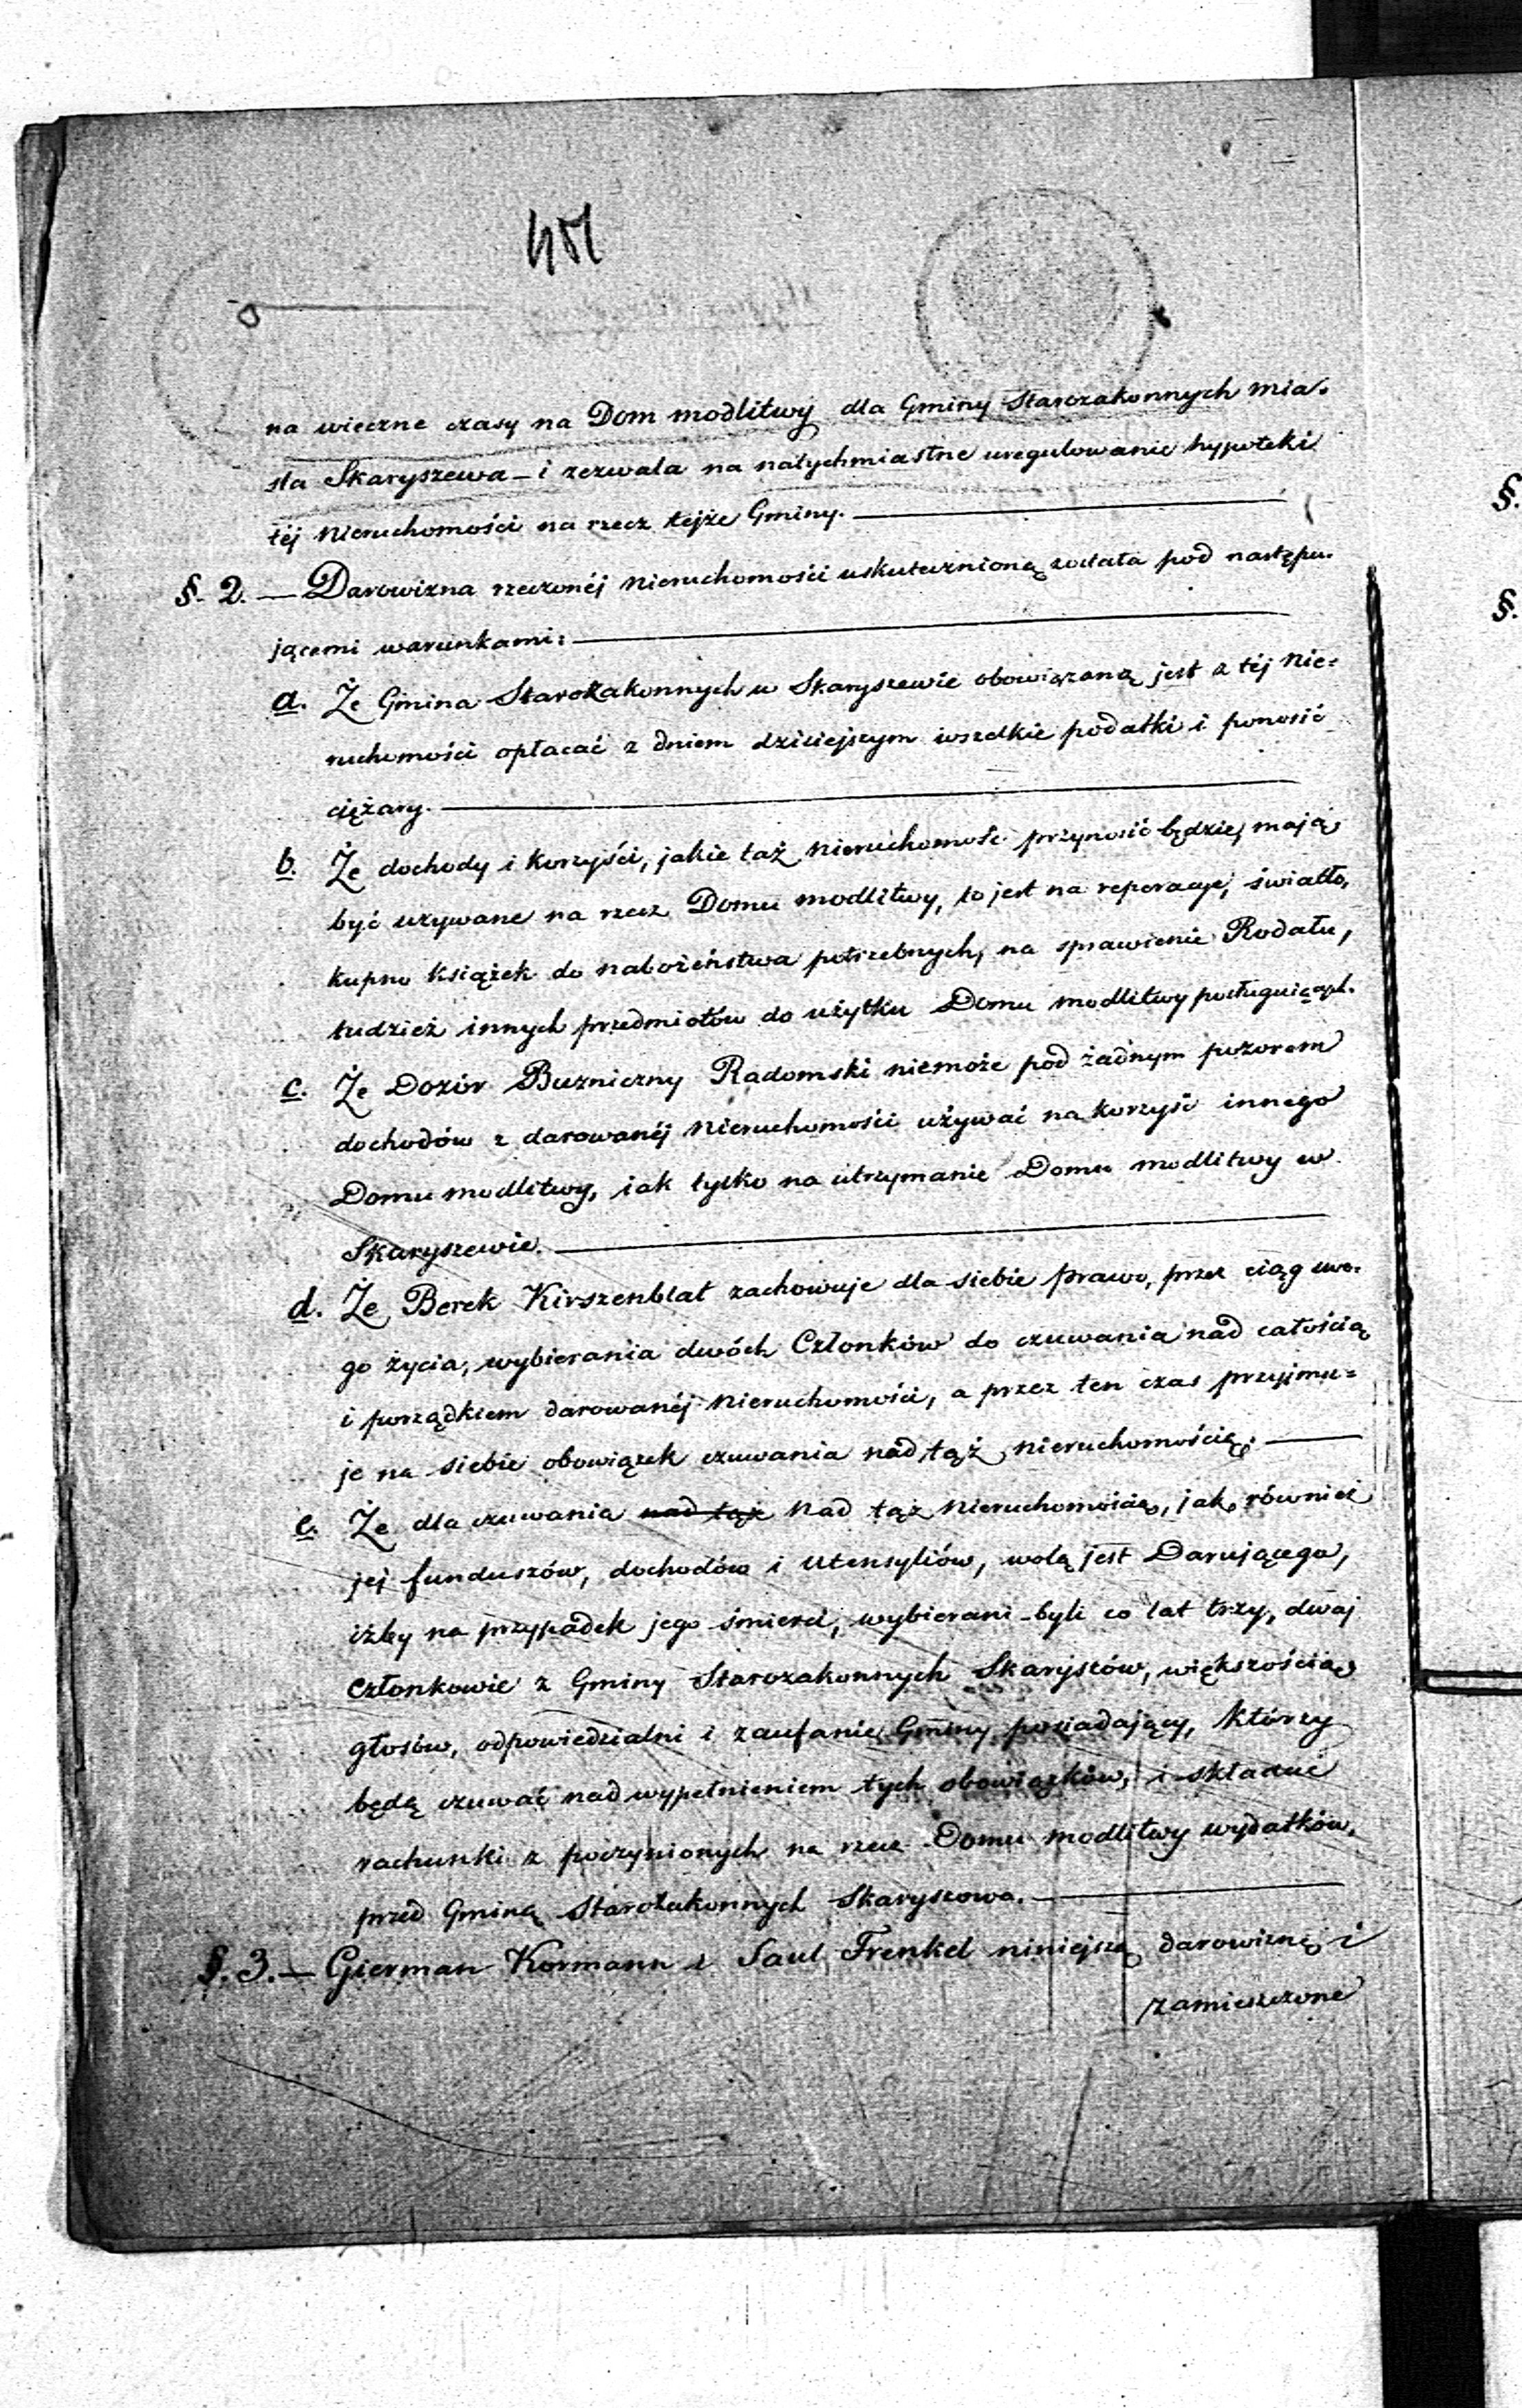 na wieczne czasy na Dom modlitwy dla Gminy Starozakonnych mia-
sta Skaryszewa – i zezwala na natychmiastne uregulowanie hypoteki
téj Nieruchomości na rzecz tejże Gminy.
§. 2. — Darowizna rzeczonéj Nieruchomości uskutecznioną została pod następu-
jącemi warunkami:
a. Że Gmina Starozakonnych w Skaryszewie obowiązaną jest z téj Nie-
ruchomości opłacać z dniem dzisiejszym wszelkie podatki i ponosić
ciężary.
b. Że dochody i korzyści, jakie taż Nieruchomość przynosić będzie, mają
być używane na rzecz Domu modlitwy, to jest na reperacye, światło,
kupno książek do nabożeństwa potrzebnych, na sprawienie Rodału,
tudzież innych przedmiotów do użytku Domu modlitwy
c. Że Dozór Bużniczny Radomski niemoże pod żadnym pozorem
dochodów z darowanéj Nieruchomości używać na korzyść innego
Domu modlitwy, iak tylko na utrzymanie Domu modlitwy w
Skaryszewie.
d. Że Berek Kirszenblat zachowuje dla siebie prawo, przez ciąg swe-
go życia, wybierania dwóch Członków do czuwania nad całością
i porządkiem darowanéj Nieruchomości, a przez ten czas przyjmu-
je na siebie obowiązek czuwania nad tąż nieruchomością.
e. Że dla czuwania nad tąż nad tąż Nieruchomością, jako również
jej funduszów, dochodów i utensyliów, wolą jest Darującego,
iżby na przypadek jego śmierci, wybierani byli co lat trzy, dwaj
Członkowie z Gminy Starozakonnych Skaryszów, większością
głosów, odpowiedzialni i zaufanie Gminy posiadający, którzy
będą czuwać nad wypełnieniem tych obowiązków, i składać
rachunki z poczynionych na rzecz Domu modlitwy wydatków,
przed Gminą Starozakonnych Skaryszewa.
§. 3. — Gierman Kormann i Saul Frenkel niniejszą darowiznę i
zamieszczone
§.
§.